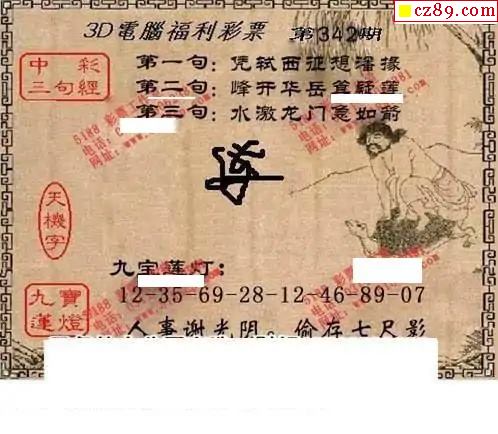 cz89.com
3D電腦福利彩票 第342期
中彩
三句經
第一句:凭轼西征想潘掾
第二句:峰开华岳耸疑莲
第三句:水激龙门急如箭
天機字
九宝莲灯:
九寶
蓮燈
12-35-69-28-12-46-89-07
人事谢光阴。偷存七尺影